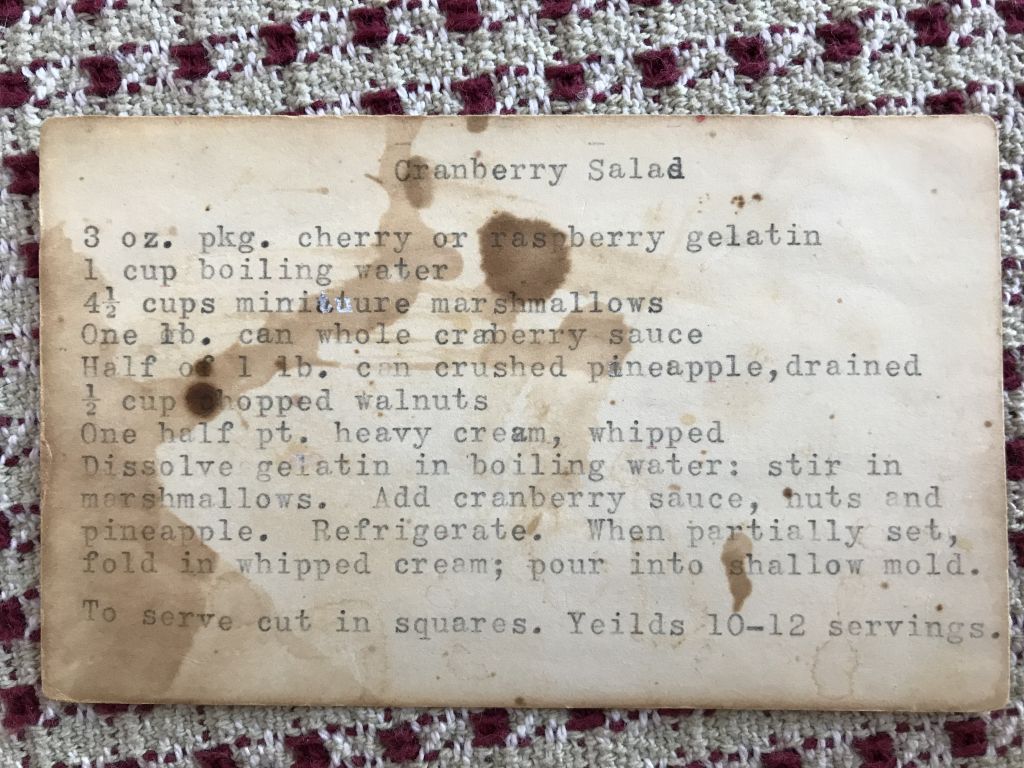 Cranberry Salad
3 oz. pkg. cherry or raspberry gelatin
1 cup boiling water
4½ cups miniature marshmallows
One lb. can whole craberry sauce
Half of 1 lb. can crushed pineapple,drained
½ cup chopped walnuts
One half pt. heavy cream, whipped
Dissolve gelatin in boiling water: stir in
marshmallows.  Add cranberry sauce, nuts and
pineapple.  Refrigerate.  When partially set,
fold in whipped cream; pour into shallow mold.
To serve cut in squares. Yeilds 10-12 servings.